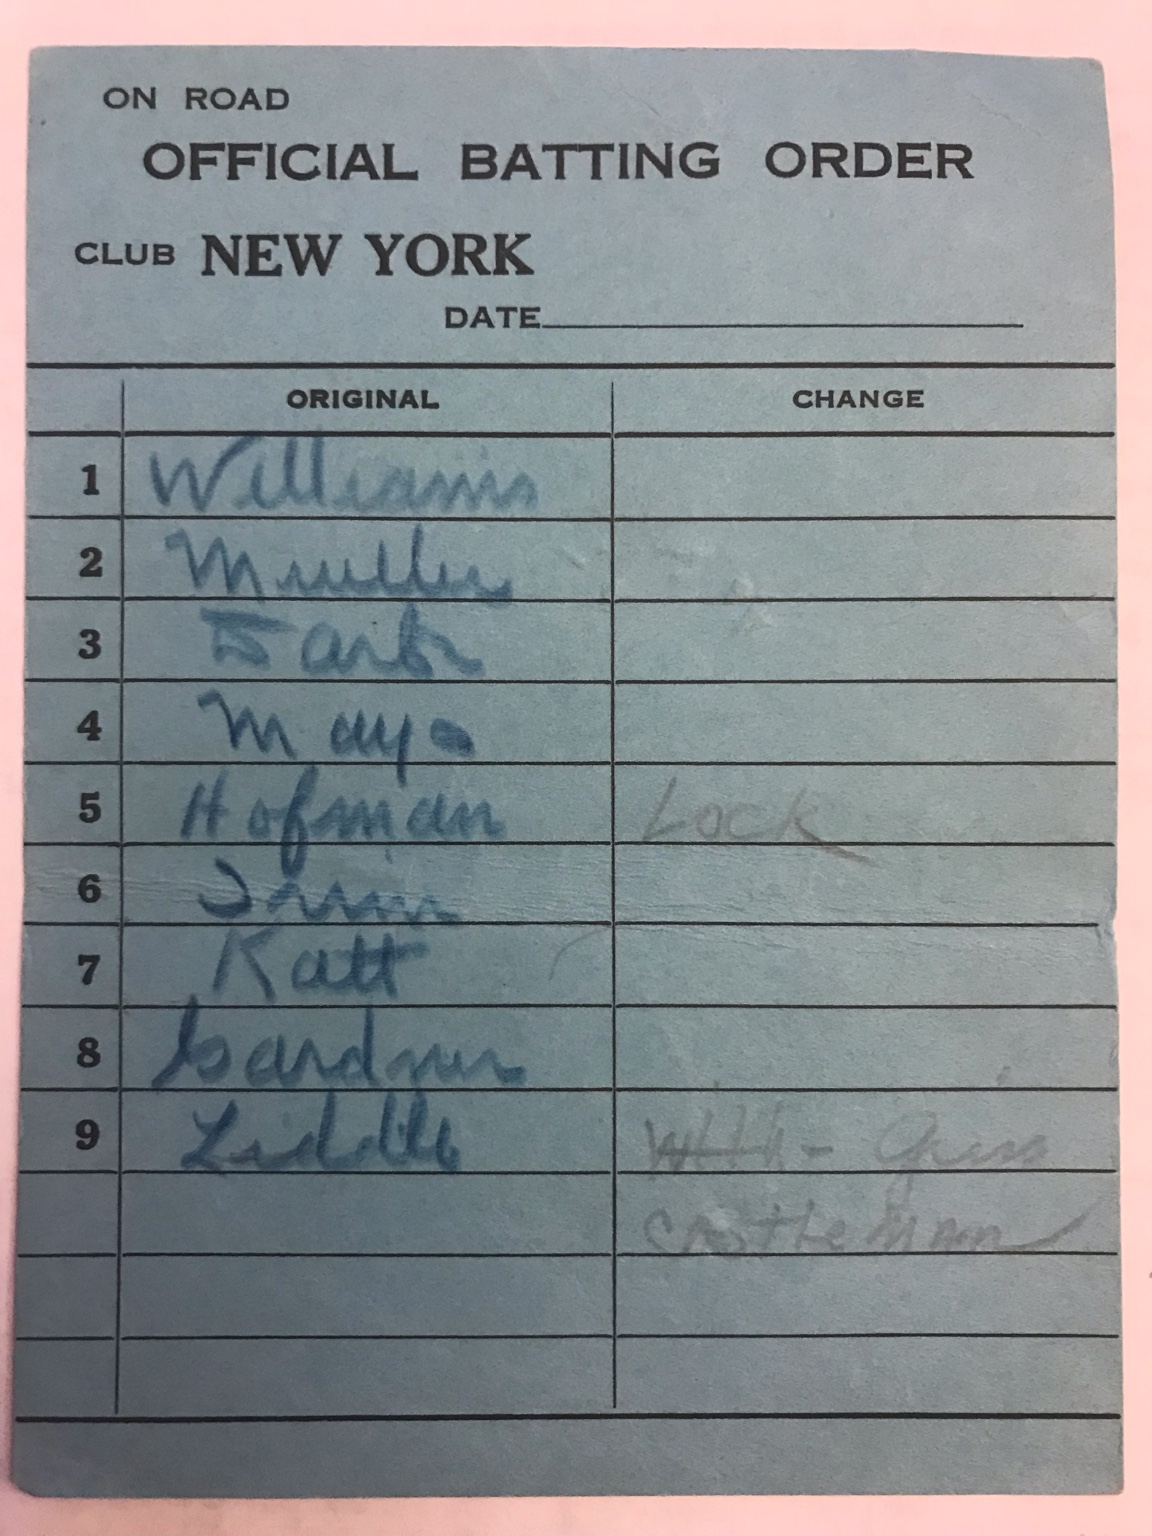 ON ROAD
OFFICIAL BATTING ORDER
CLUB NEW YORK
DATE
ORIGINAL CHANGE
1 Williams
2 Mueller
3 Dark
4 Mays
5 Hofman Lock
6 Irvin
7 Katt
8 Gardner
9 Liddle
Castleman